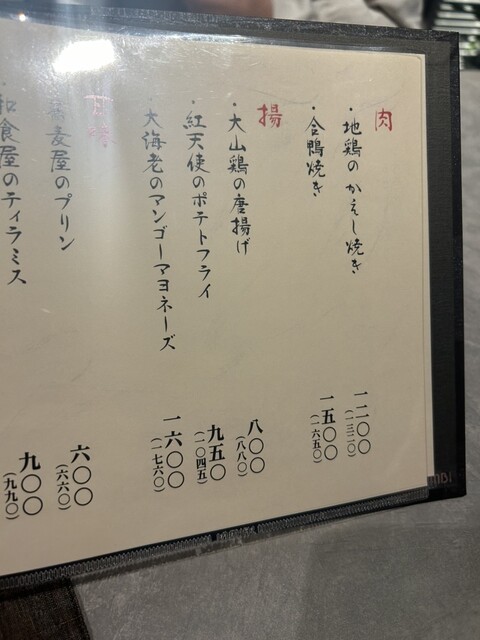 肉
・地鶏のかえし焼き
一二〇〇
(一三二〇)
・合鴨焼き
一五〇〇
(一六五〇)
揚
・大山鶏の唐揚げ
八〇〇
(八八〇)
・紅天使のポテトフライ
九五〇
(一〇四五)
・大海老のマンゴーマヨネーズ
一六〇〇
(一七六〇)
蕎麦屋のプリン
六〇〇
(六六〇)
・和食屋のティラミス
九〇〇
(九九〇)